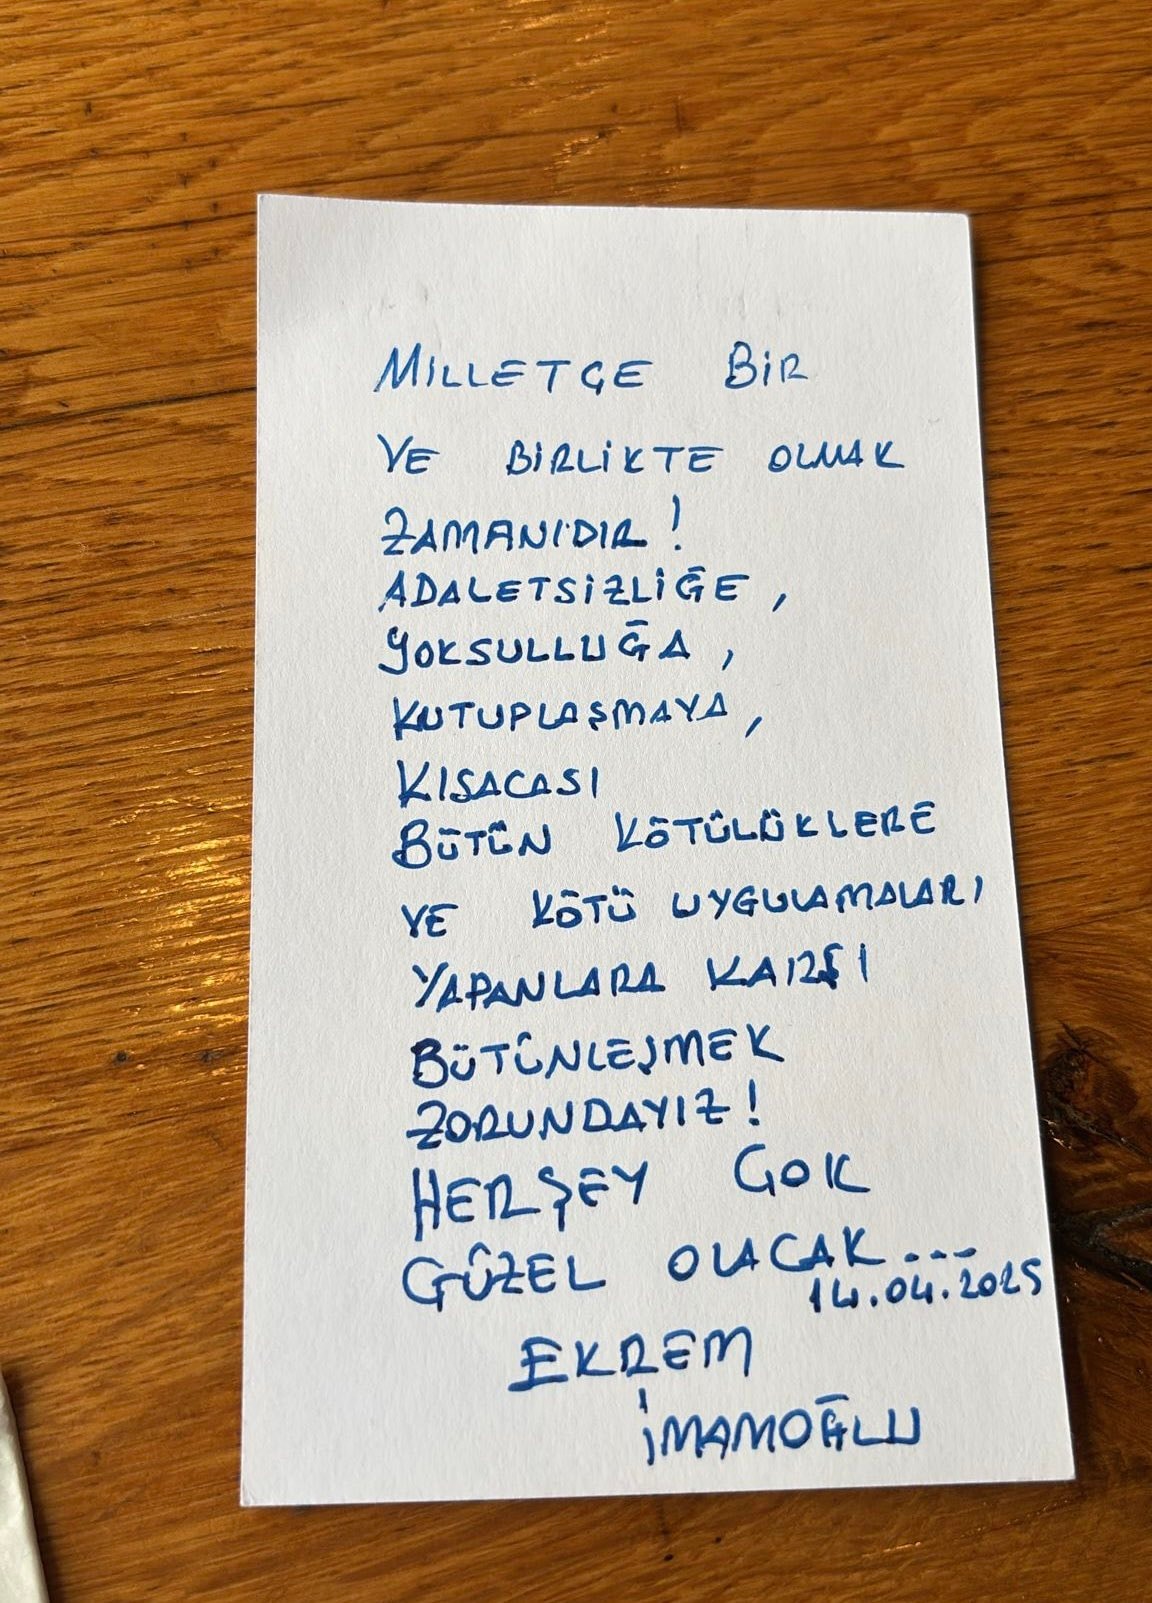 MİLLETÇE BİR
VE BİRLİKTE OLMAK
ZAMANIDIR!
ADALETSİZLİĞE,
YOKSULLUĞA,
KUTUPLAŞMAYA,
KISACASI
BÜTÜN KÖTÜLÜKLERE
VE KÖTÜ UYGULAMALARI
YAPANLARA KARŞI
BÜTÜNLEŞMEK
ZORUNDAYIZ!
HERŞEY ÇOK
GÜZEL OLACAK....
14.04.2025
EKREM
İMAMOĞLU